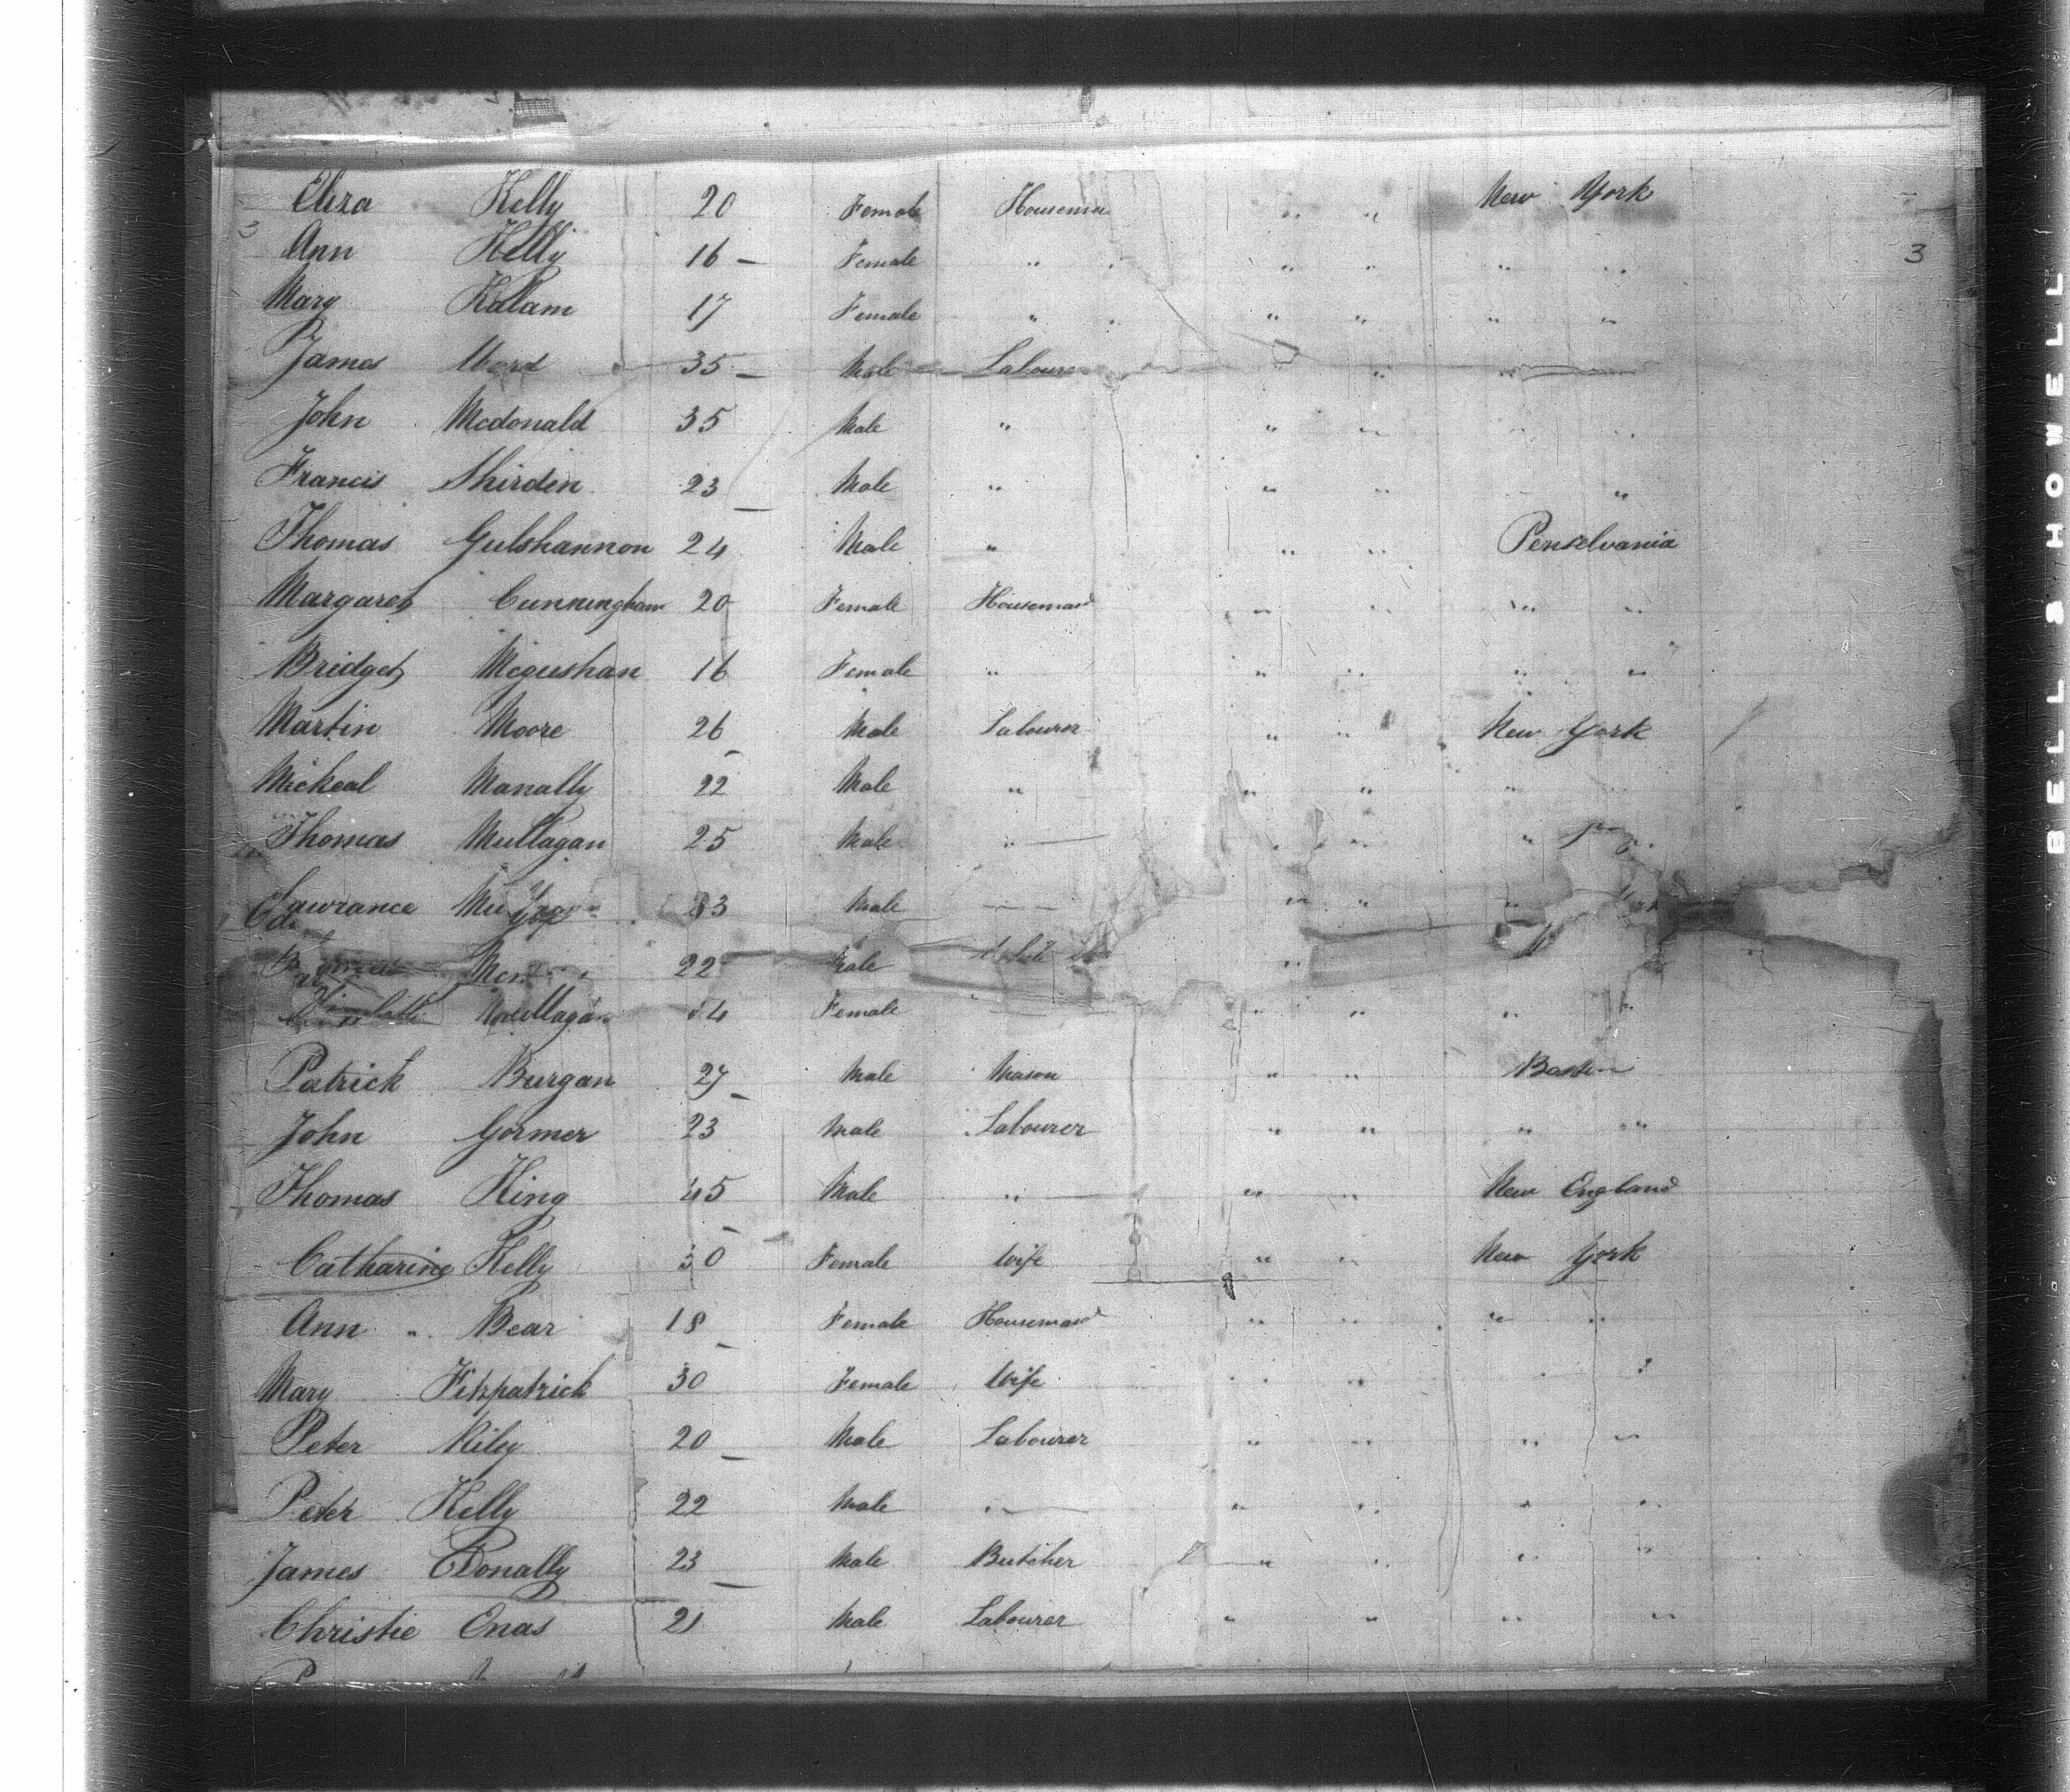 Eliza Kelly 20 Female " " New York
3 Ann Kelly 16 – Female " " " " " " 3
Mary Kallam 17 Female " " " " " "
James Ward 35 – Male Labourer " " "
John Mcdonald 35 Male " " " " "
Francis Shirden 23 – Male " " " "
Thomas Gulshannon 24 Male " " " Penselvania
Margaret Cunningham 20 Female Housemaid " " " "
Bridget Megueshan 16 Female " " " " "
Martin Moore 26 – Male Labourer " " New York
Mickeal Manally 22 Male " " " "
Thomas Mullagan 25 Male " " " "
Lawrance Male " " "
22 Male "
Mullagan Female " " " "
Patrick Burgan 27 – Male Mason " " Boston
John Gormer 23 Male Labourer " " " "
Thomas King 45 – Male " " " New England
Catharine Kelly 30 Female Wife " " New York
Ann " Bear 18 – Female Housemaid " " " "
Mary Fitzpatrick 30 Female Wife " " " "
Peter Riley 20 – Male Labourer " " " "
Peter Kelly 22 Male " " " " "
James CDonally 23 – Male Butcher " " " "
Christie Onas 21 Male Labourer " " " "
BELL & HOWELL